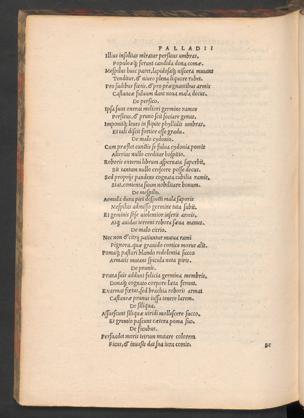 PALLADII
Illius insolitas miratur persicus umbras,
Populeæq; ferunt candida dona comæ.
Mespilus huic paret, lapidosaq; viscera mutans
Tenditur, & niueo plena liquore rubet.
Pro sudibus fœtis, & pro prægnantibus armis
Castaneæ fuluum dant noua mala decus.
De persico.
Ipsa suos onerat meliori germine ramos
Persicus, & pruno scit sociare genus.
Imponitq; leues in stipite phyllidis umbras,
Et tali discit fortior esse gradu.
De malo cydonio.
Cum præstet cunctis se fulua cydonia pomis
Alterius nullo creditur hospitio.
Roboris externi librum aspernata superbit,
Sit tantum nullo crescere posse decus.
Sed proprijs pandens cognata cubilia ramis,
Stat, contenta suum nobilitare bonum.
De mespilo.
Aemula dura piri despecti mala saporis
Mespilus admisso germine tuta subit.
Et geminis ipse uiolentior inserit armis,
Atq; auidas terrent robora sæua manus.
De malo citrio.
Nec non & citrij patiuntur mutua rami
Pignora, quæ grauido cortice morus alit.
Pomaq; pasturi blando redolentia succo
Armatis mutant spicula nota piris.
De prunis.
Pruna suis addunt felicia germina membris,
Donaq; cognato corpore læta ferunt.
Exarmat fœtus, sed brachia roboris armat
Castaneæ prunus iussa tenere larem.
De siliqua.
Assuescunt siliquæ uiridi mollescere succo,
Et gremio pascunt cætera poma suo.
De ficubus.
Persuadet moris tetrum mutare colorem
Ficus, & inuasit dat sua iura comis.